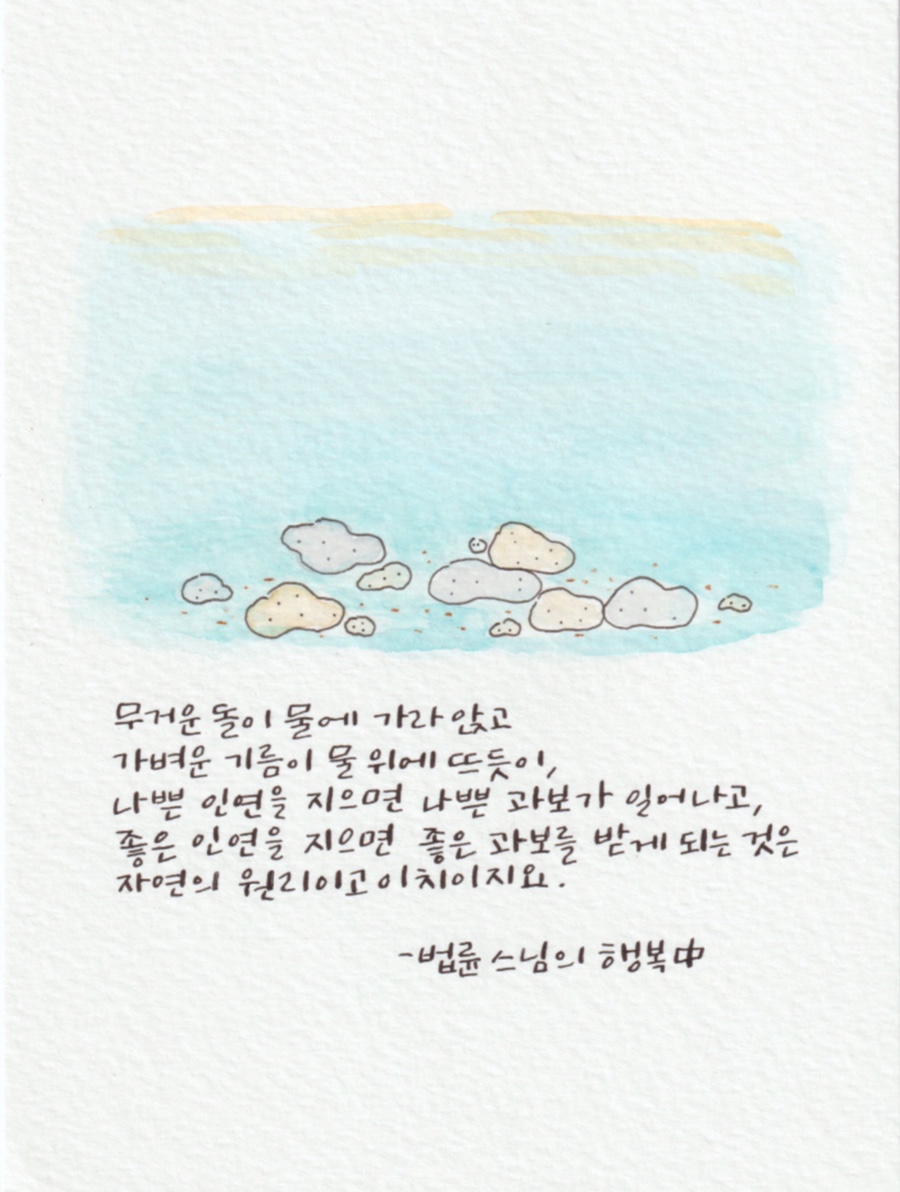 무거운 돌이 물에 가라 앉고
가벼운 기름이 물 위에 뜨듯이,
나쁜 인연을 지으면 나쁜 과보가 일어나고,
좋은 인연을 지으면 좋은 과보를 받게 되는 것은
자연의 원리이고 이치이지요.
-법륜 스님의 행복中